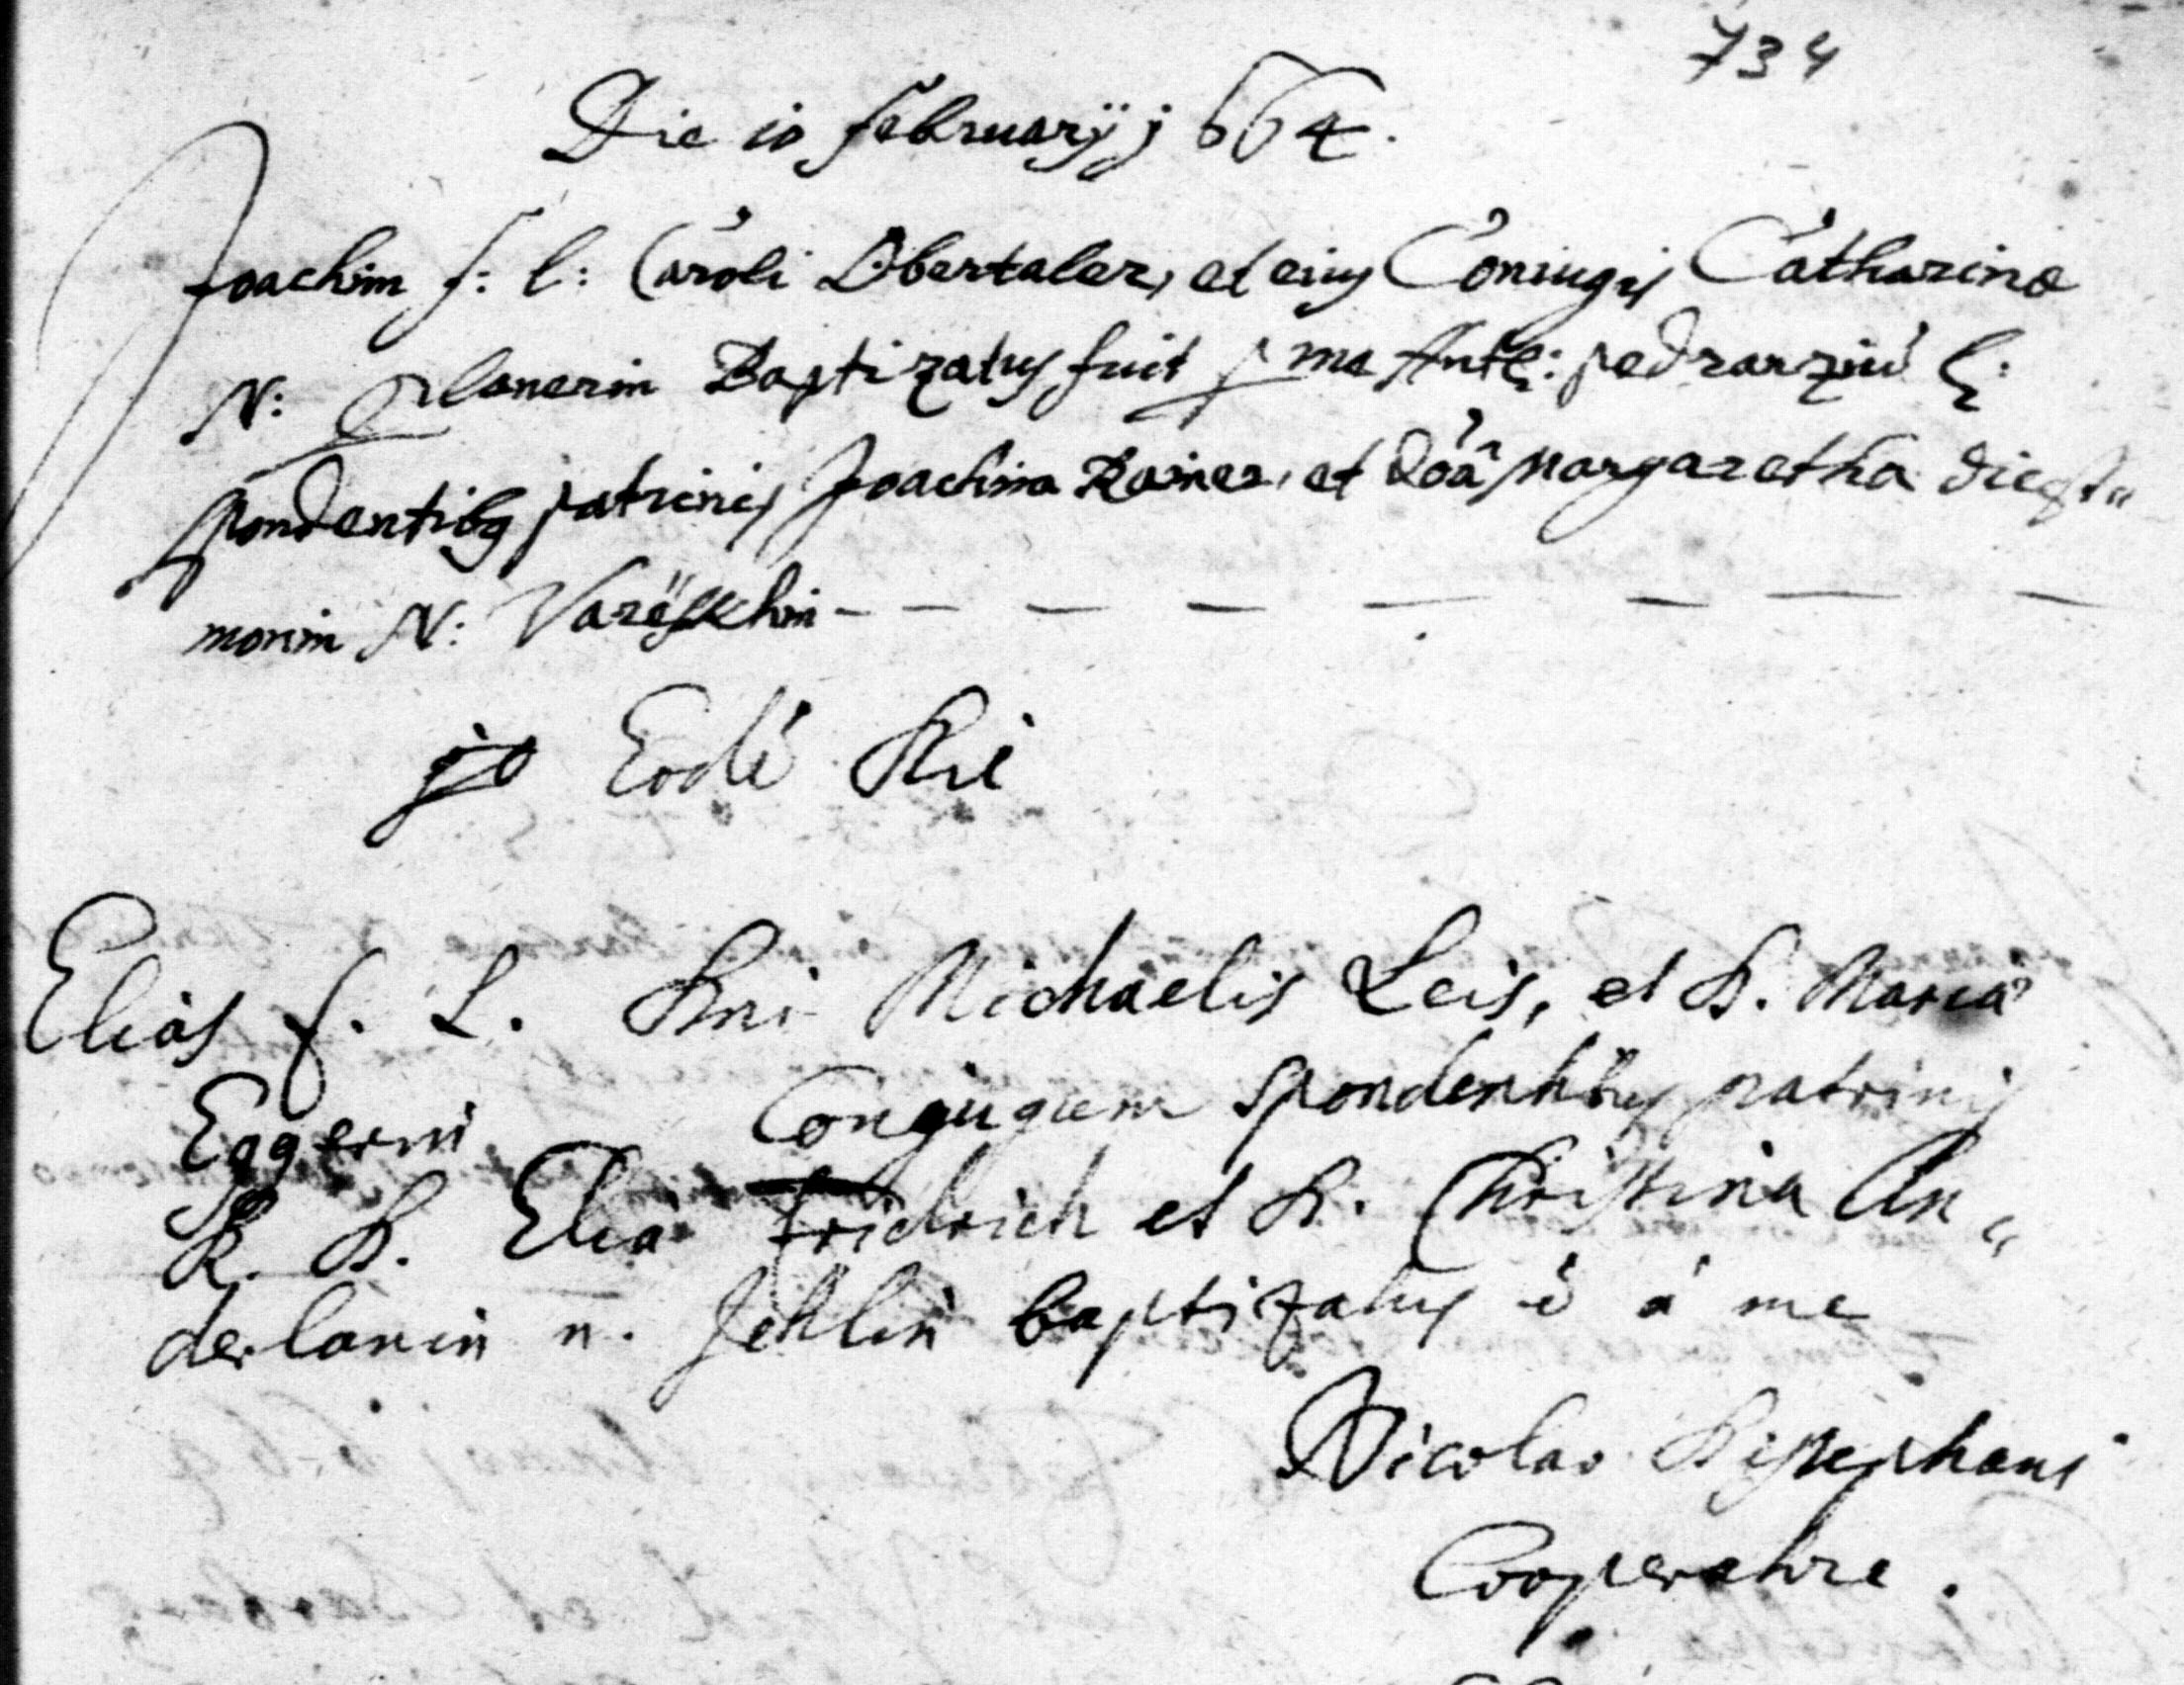 734
Die io februarÿ j664.
Joachim f: l: Caroli Obertaler, et eius Coniugis Catharinæ
N: Planerin Baptizatus fuit p me Anth: pedranziũ l:
spondentibq patrinis Joachimo Rainer, et Doâ Margaretha diest„
morin N: Varëschin - - - - - - - -
Eodẽ Die
Elias f. L. Dni Michaelis Leis, et D. Maria
Eggerin Conjugum spondentibus patrinis
R. D. Elia Fridrich et D. Christina An„
derlanin n. Jehlin baptizatus ẽ á me
Nicolao
Cooperatore.